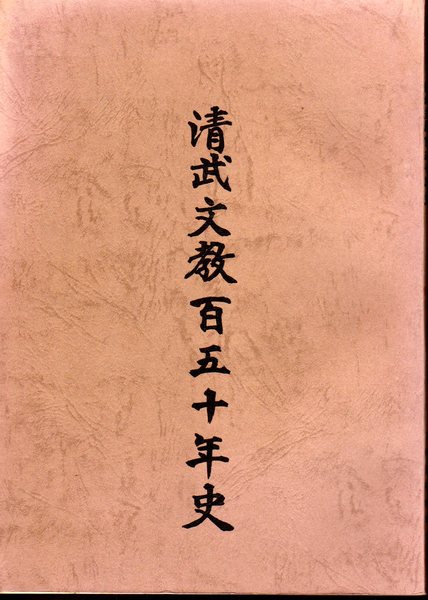 清武文教百五十年史